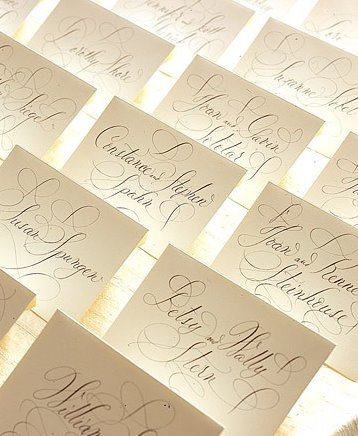 Jennifer and Scott
Dorothy Shore
Suzanne
Siegel
Joan and Calvin
Sklar
Constance and Stephen
Spahn
Susan Spungen
Joan and Kenne
Steinhouse
Betsy and Wally
Stern
William